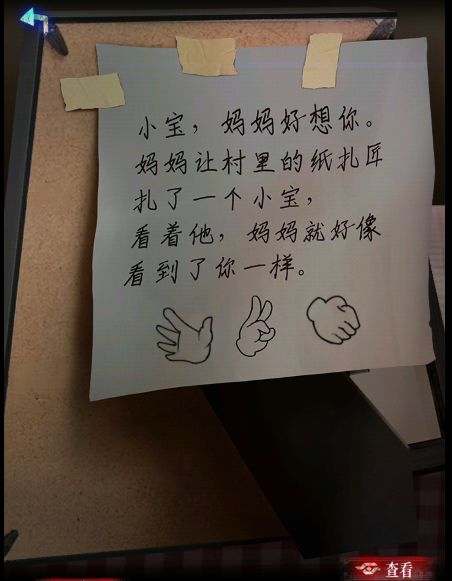 小宝，妈妈好想你。
妈妈让村里的纸扎匠
扎了一个小宝，
看着他，妈妈就好像
看到了你一样。
查看